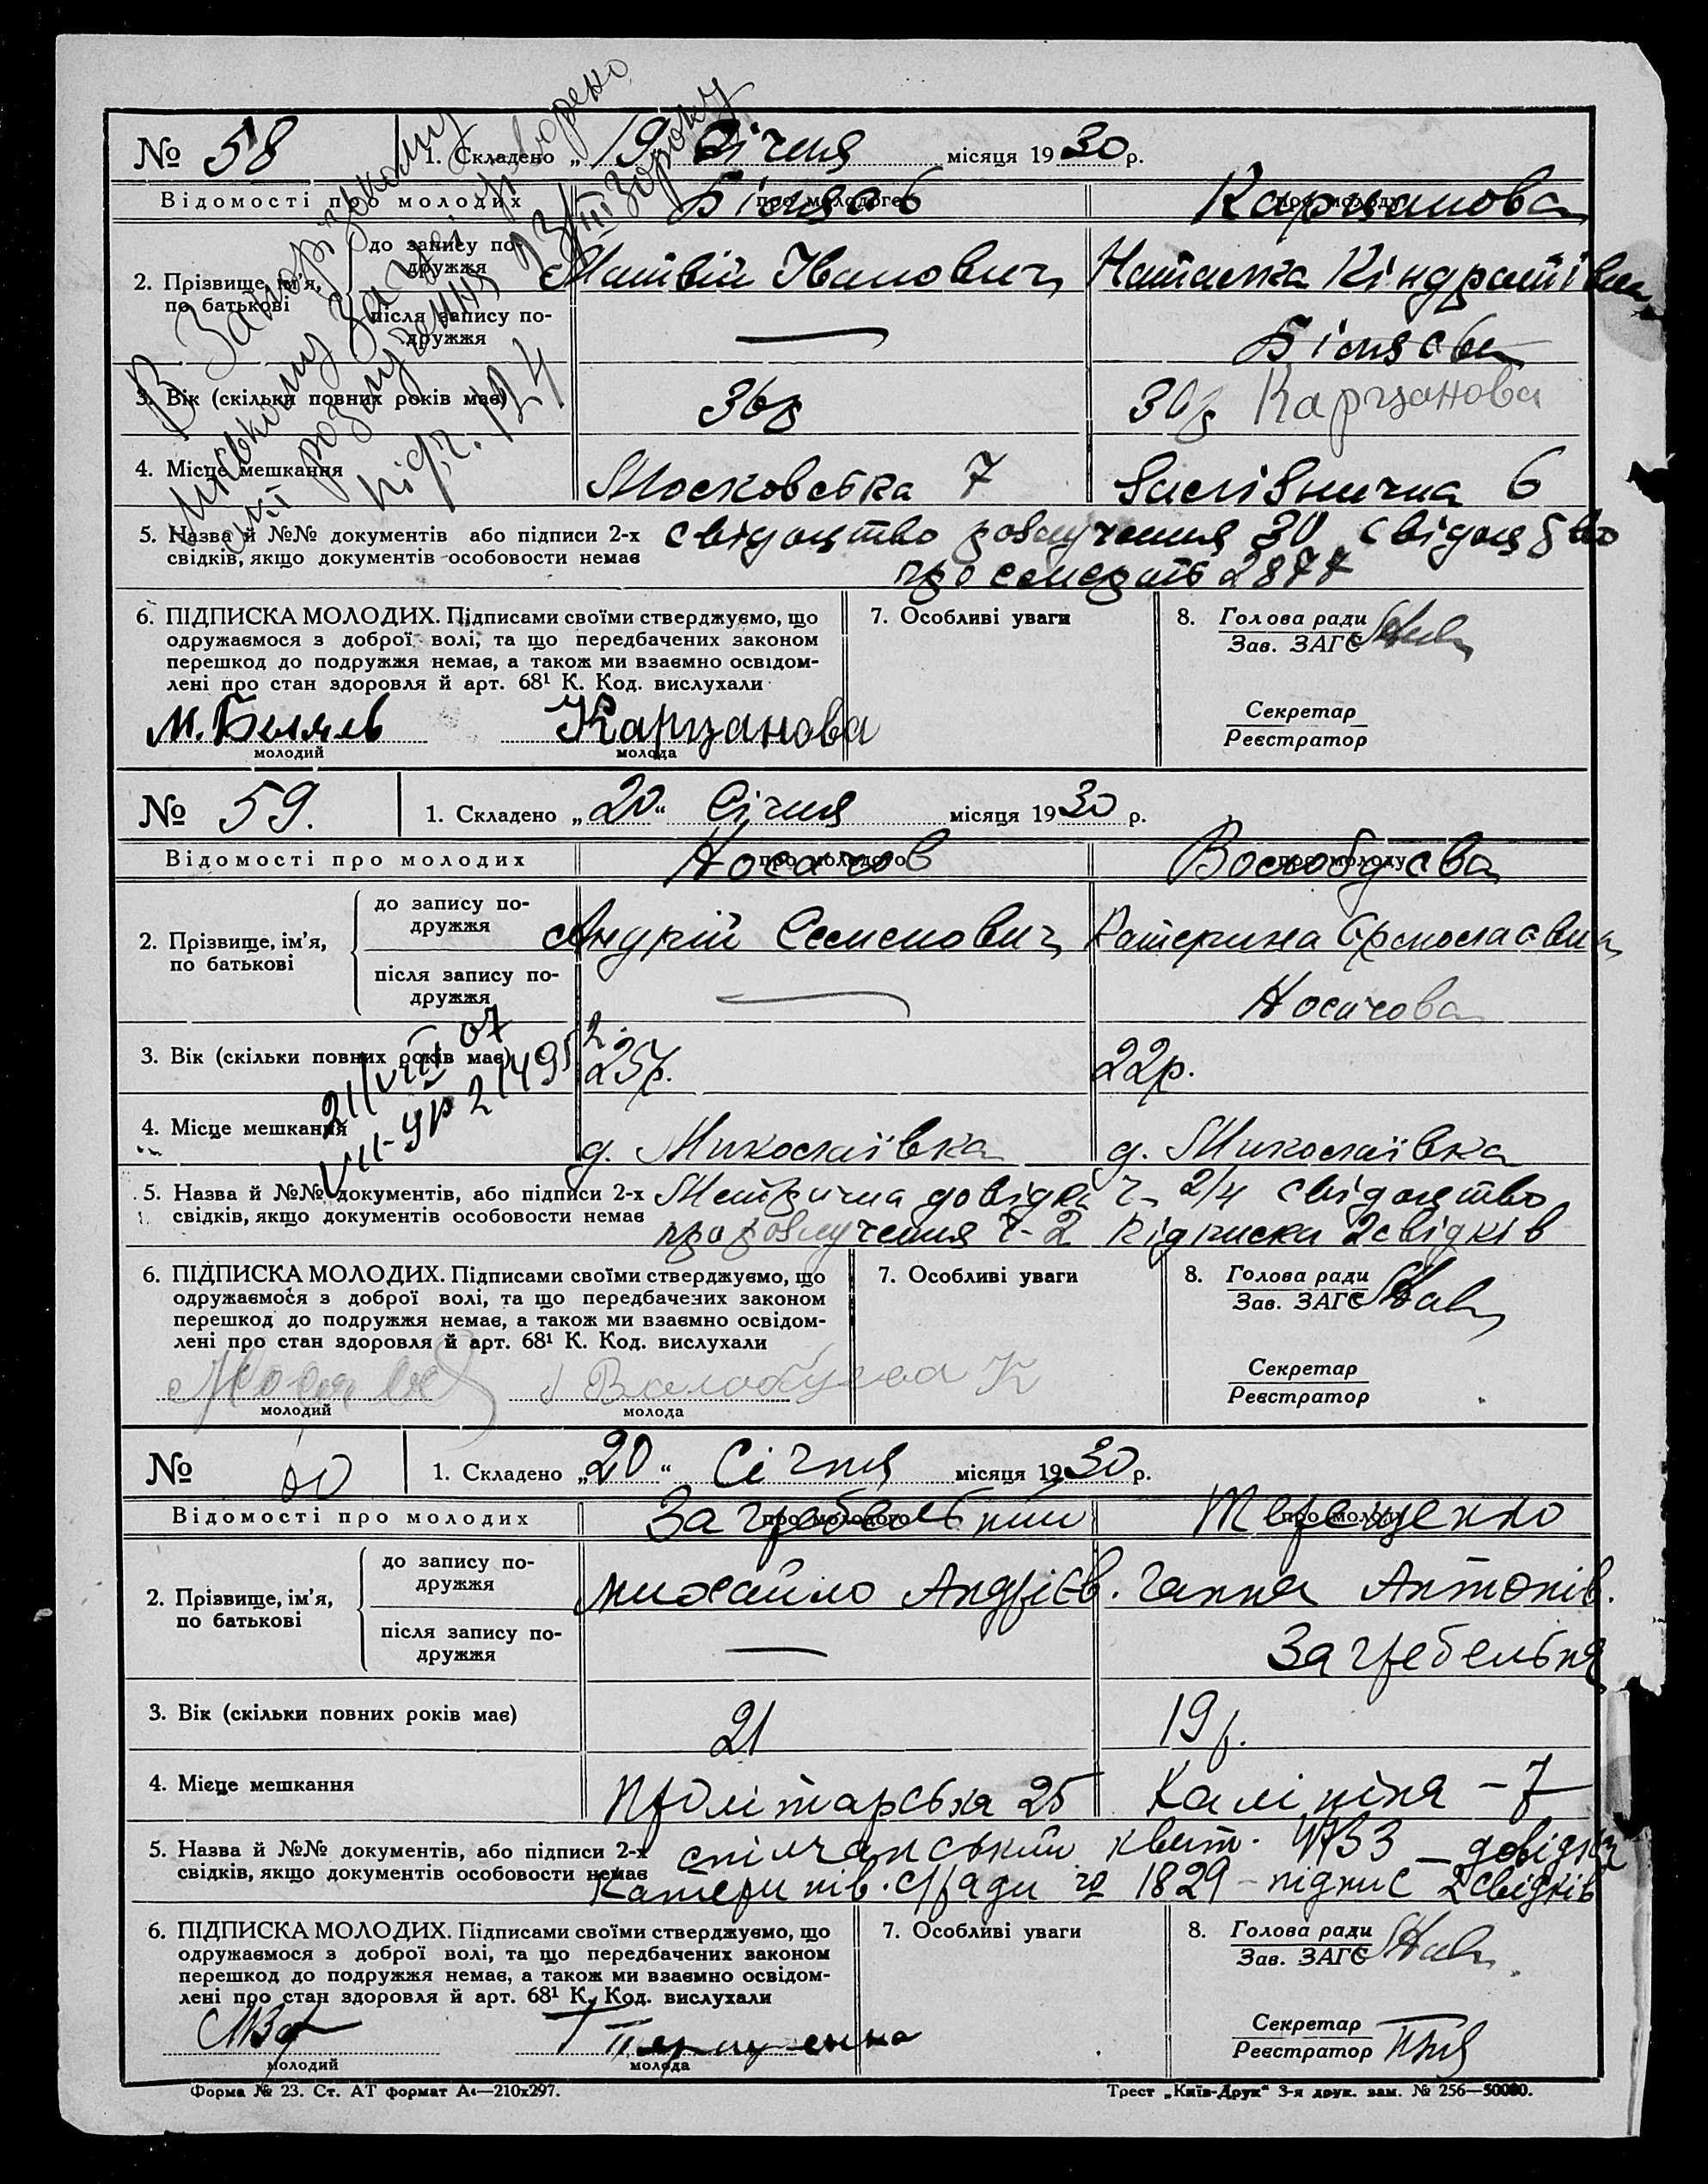 № 58 1. Складено „19" Січня місяця 1930 р.
Відомості про молодих про молодого про молоду
Карцанова
2. Прізвище, ім'я, по батькові
до запису подружжя Матвій Іванович Наталка Кіндратівна
після запису подружжя —
Карцанова
3. Вік (скільки повних років має) 36р 30р
4. Місце мешкання Московська 7 6
5. Назва й №№ документів або підписи 2-х свідоцтво розлучення 30 свідоцтво
свідків, якщо документів особовости немає про смерть 2877
В Запорізькому
міському Загсі
розлучення
під ч. 124
6. ПІДПИСКА МОЛОДИХ. Підписами своїми стверджуємо, що
одружаємося з доброї волі, та що передбачених законом
перешкод до подружжя немає, а також ми взаємно освідом-
лені про стан здоровля й арт. 68¹ К. Код. вислухали
7. Особливі уваги
8. Голова ради
Зав. ЗАГС
Секретар
Реєстратор
М. Беляєв Карцанова
молодий молода
№ 59. 1. Складено „20" Січня місяця 1930 р.
Відомості про молодих про молодого про молоду
Носачов Воскобуєва
2. Прізвище, ім'я, по батькові
до запису подружжя Андрій Семенович Катерина
після запису подружжя — Носачова
3. Вік (скільки повних років має) 25р. 22р.
21/VIII 07
VІІ-УР 21495
4. Місце мешкання д. Миколаївка д. Миколаївка
5. Назва й №№ документів, або підписи 2-х Метрична довідка ч. 2/4 свідоцтво
свідків, якщо документів особовости немає про розлучення ч-2 підписка 2 свідків
6. ПІДПИСКА МОЛОДИХ. Підписами своїми стверджуємо, що
одружаємося з доброї волі, та що передбачених законом
перешкод до подружжя немає, а також ми взаємно освідом-
лені про стан здоровля й арт. 68¹ К. Код. вислухали
7. Особливі уваги
8. Голова ради
Зав. ЗАГС
Секретар
Реєстратор
молодий молода
№ 60 1. Складено „20" Січня місяця 1930 р.
Відомості про молодих про молодого про молоду
Загребельний Терещенко
2. Прізвище, ім'я, по батькові
до запису подружжя Михайло Андрієв. Ганна Антонів.
після запису подружжя — Загребельна
3. Вік (скільки повних років має) 21 19р.
4. Місце мешкання Пролітарська 25 Калініна - 7
5. Назва й №№ документів, або підписи 2-х спілчанський квит. довідка
свідків, якщо документів особовости немає Катеринів. с/ради 1829 - підпис 2 свідків
6. ПІДПИСКА МОЛОДИХ. Підписами своїми стверджуємо, що
одружаємося з доброї волі, та що передбачених законом
перешкод до подружжя немає, а також ми взаємно освідом-
лені про стан здоровля й арт. 68¹ К. Код. вислухали
7. Особливі уваги
8. Голова ради
Зав. ЗАГС
Секретар
Реєстратор
Г Терещенко
молодий молода
Форма № 23. Ст. АТ формат А4—210х297. Трест „Київ-Друк" 3-я друк. зам. № 256—50000.